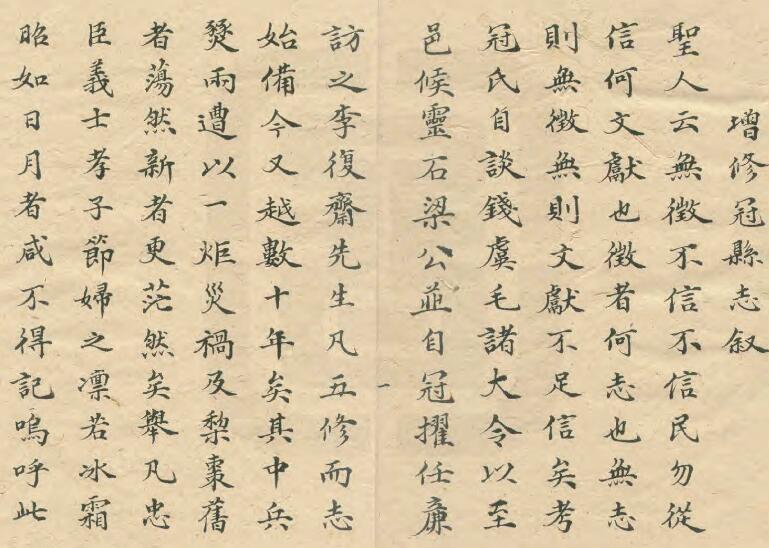 增修冠縣志叙
聖人云無徵不信不信民勿從
信何文獻也徵者何志也無志
則無徵無則文獻不足信矣考
冠氏自談錢虞毛諸大令以至
邑候靈石梁公並自冠擢任廉
訪之李復齋先生凡五修而志
始備今又越數十年矣其中兵
燹兩遭以一炬災禍及棃棗舊
者蕩然新者更茫然矣舉凡忠
臣義士孝子節婦之凛若冰霜
昭如日月者咸不得記嗚呼此